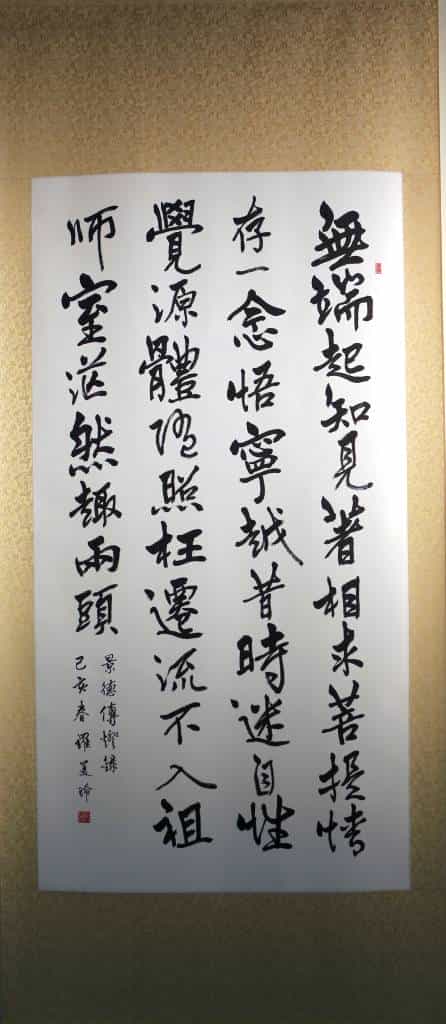 無端起知見著相求菩提情
存一念悟寧越昔時迷自性
覺源體隨照枉遷流不入祖
師室茫然趣兩頭
景德傳燈錄
己亥春羅美